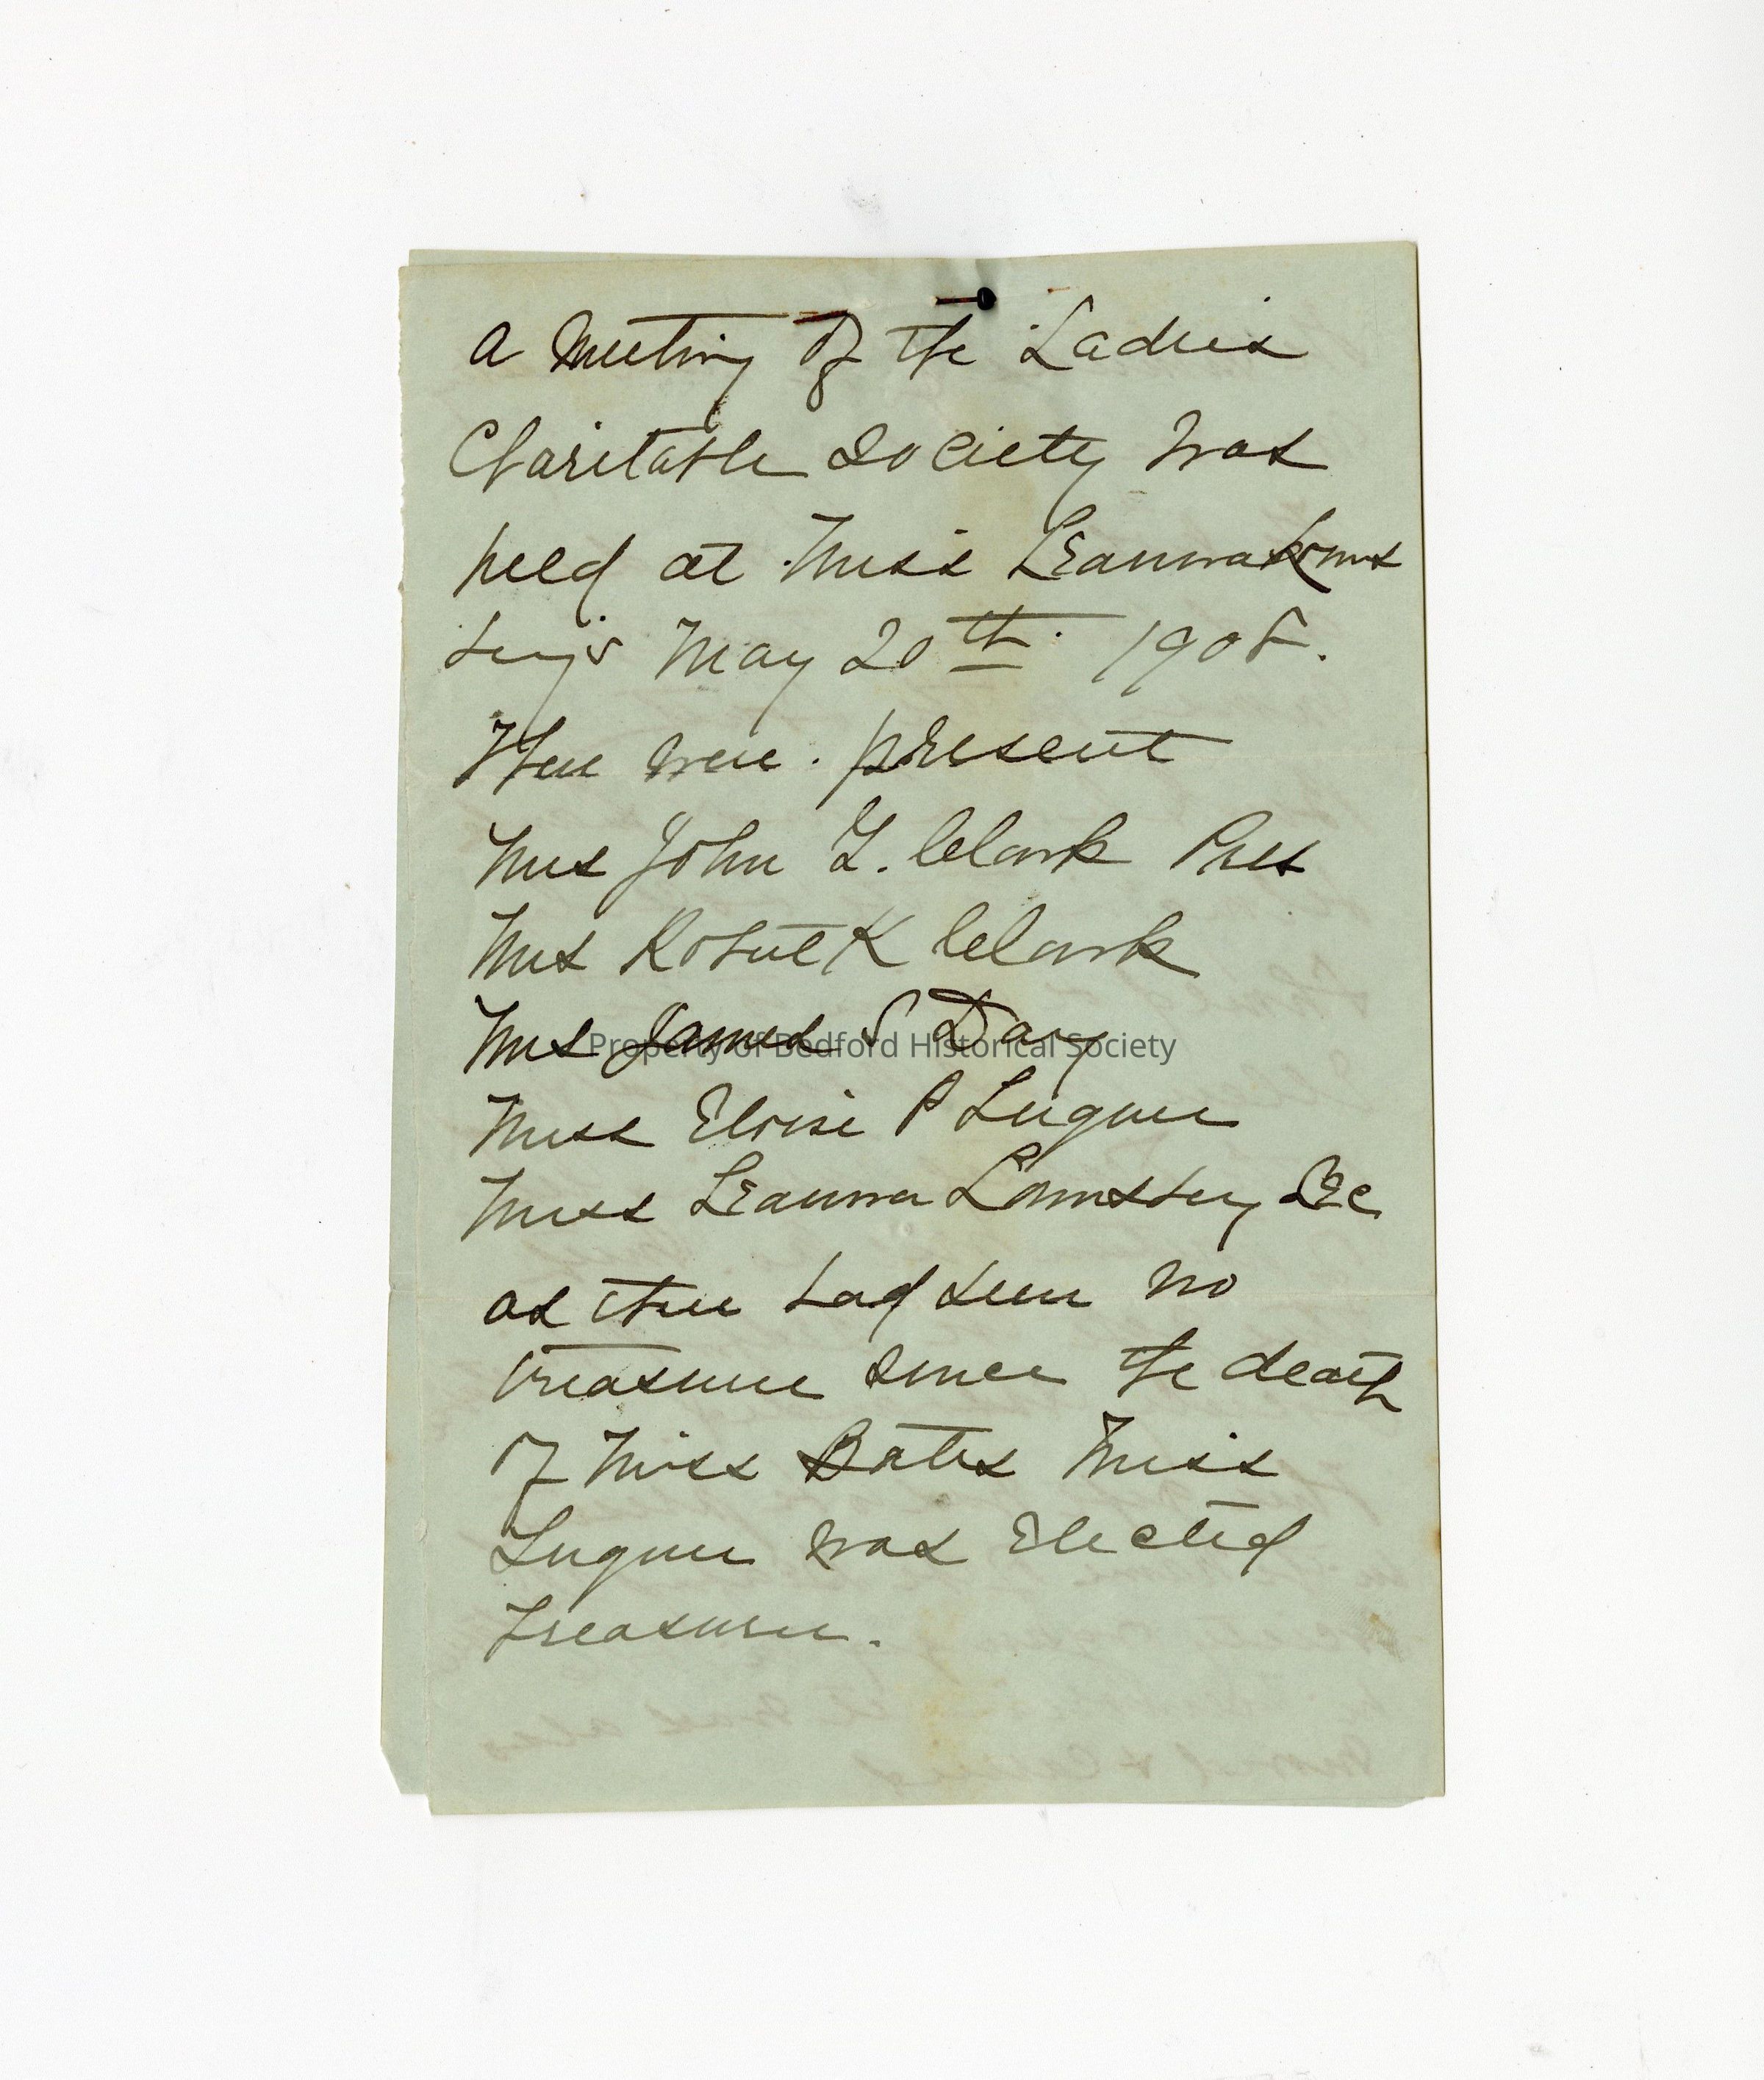 A Meeting of the Ladies
Charitable Society was
held at Miss Leanna Louns
bery's May 20th. 1908.
There were. present
Mrs John G. Clark Pres
Mrs Robert K Clark
Mrs James S Day
Property of Bedford Historical Society
Miss Eloise P Luquer
Miss Leanna Lounsbery Sec
as there had been no
treasurer since the death
of Miss Bates Miss
Luquer was Elected
Treasurer.